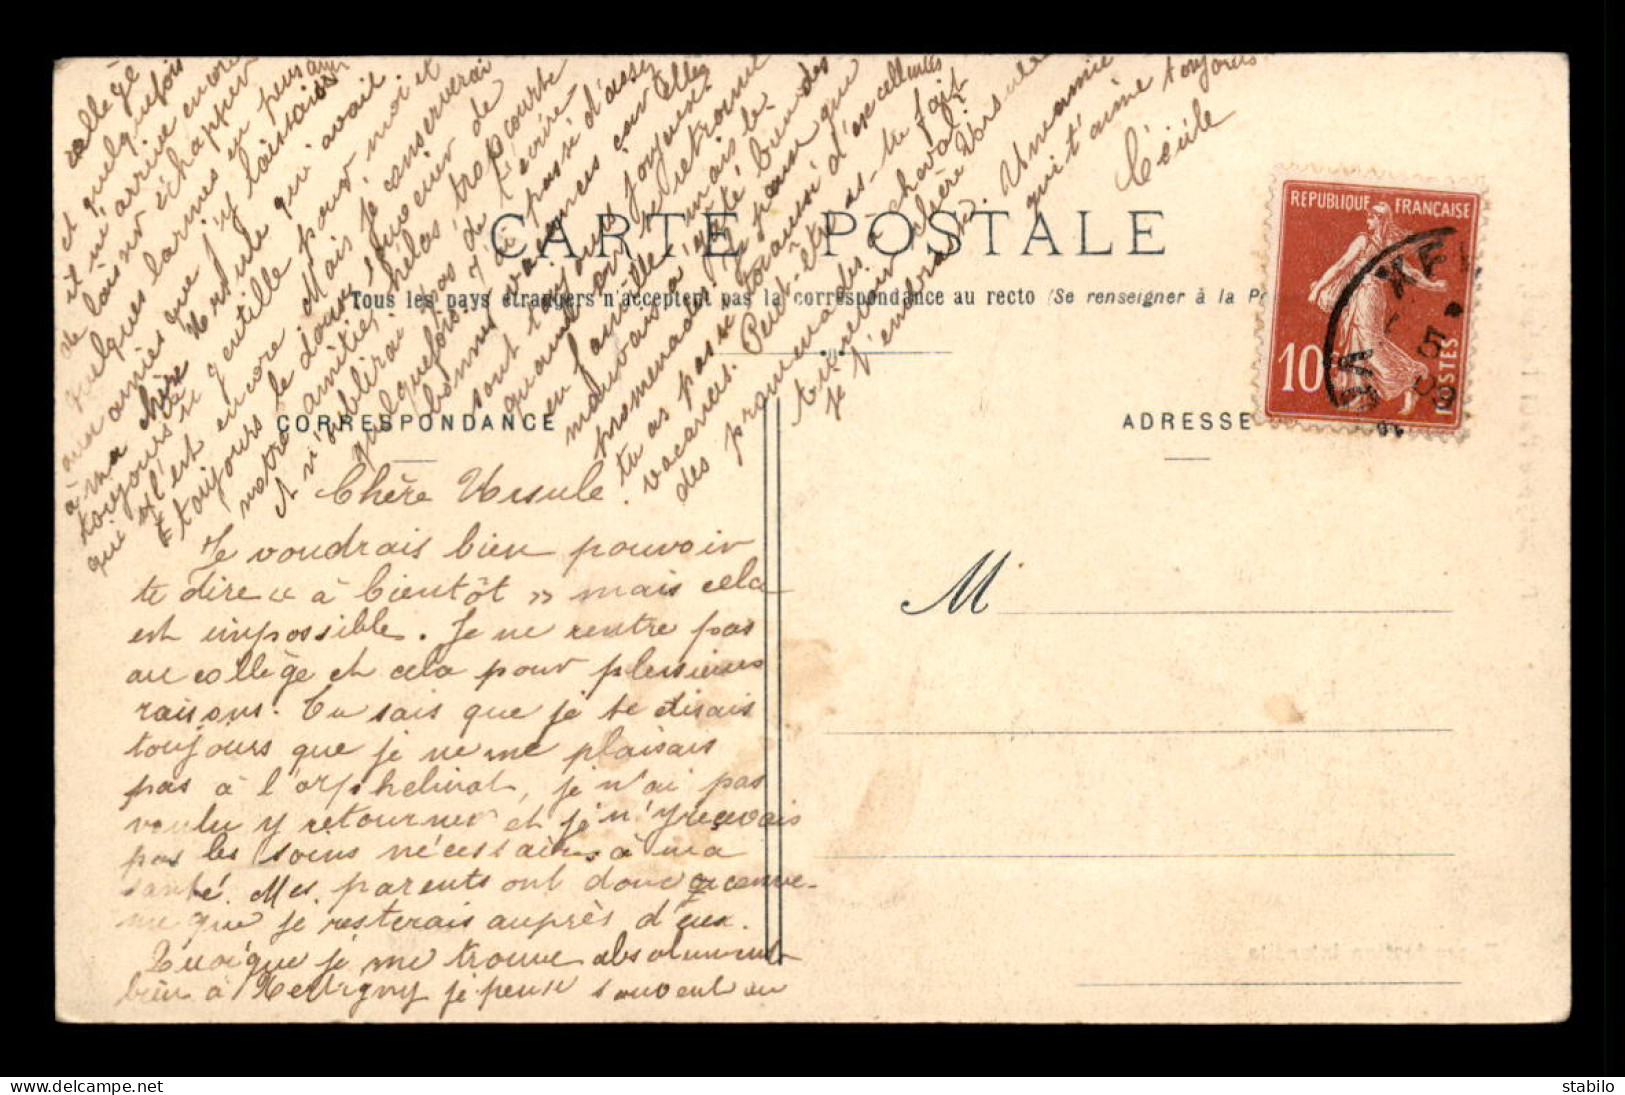 CARTE POSTALE
Tous les pays étrangers n'acceptent pas la correspondance au recto (Se renseigner à la P
CORRESPONDANCE
ADRESSE
M
REPUBLIQUE FRANÇAISE
10c
POSTES
Chère Ursule.
Je voudrais bien pouvoir
te dire « à bientôt » mais cela
est impossible. Je ne rentre pas
au collège et cela pour plusieurs
raisons. Tu sais que je te disais
toujours que je ne me plaisais
pas à l'orphelinat, je n'ai pas
voulu y retourner et je n'y recevais
pas les soins nécessaires à ma
santé. Mes parents ont donc conve-
nu que je resterais auprès d'eux.
Quoique je me trouve absolument
bien à Xertigny je pense souvent au
collège
et quelquefois
il m'arrive encore
de laisser échapper
quelques larmes en pensant
aux amies que j'y laissais
à ma chère Ursule qui avait
toujours été si gentille pour moi et
qui l'est encore. Mais je conserverai
toujours le doux souvenir de
notre amitié, hélas trop courte
et n'oublierai pas de t'écrire
quelquefois. J'ai passé d'assez
bonnes vacances car elles
sont toujours joyeuses
quand on se retrouve
en famille, mais le
mauvais a gâté bien des
promenades. Je pense que
tu as passé toi aussi d'excellentes
vacances. Peut-être as-tu fait
des promenades à cheval?
Au revoir chère Ursule
je t'embrasse. Une amie
qui t'aime toujours
Cécile